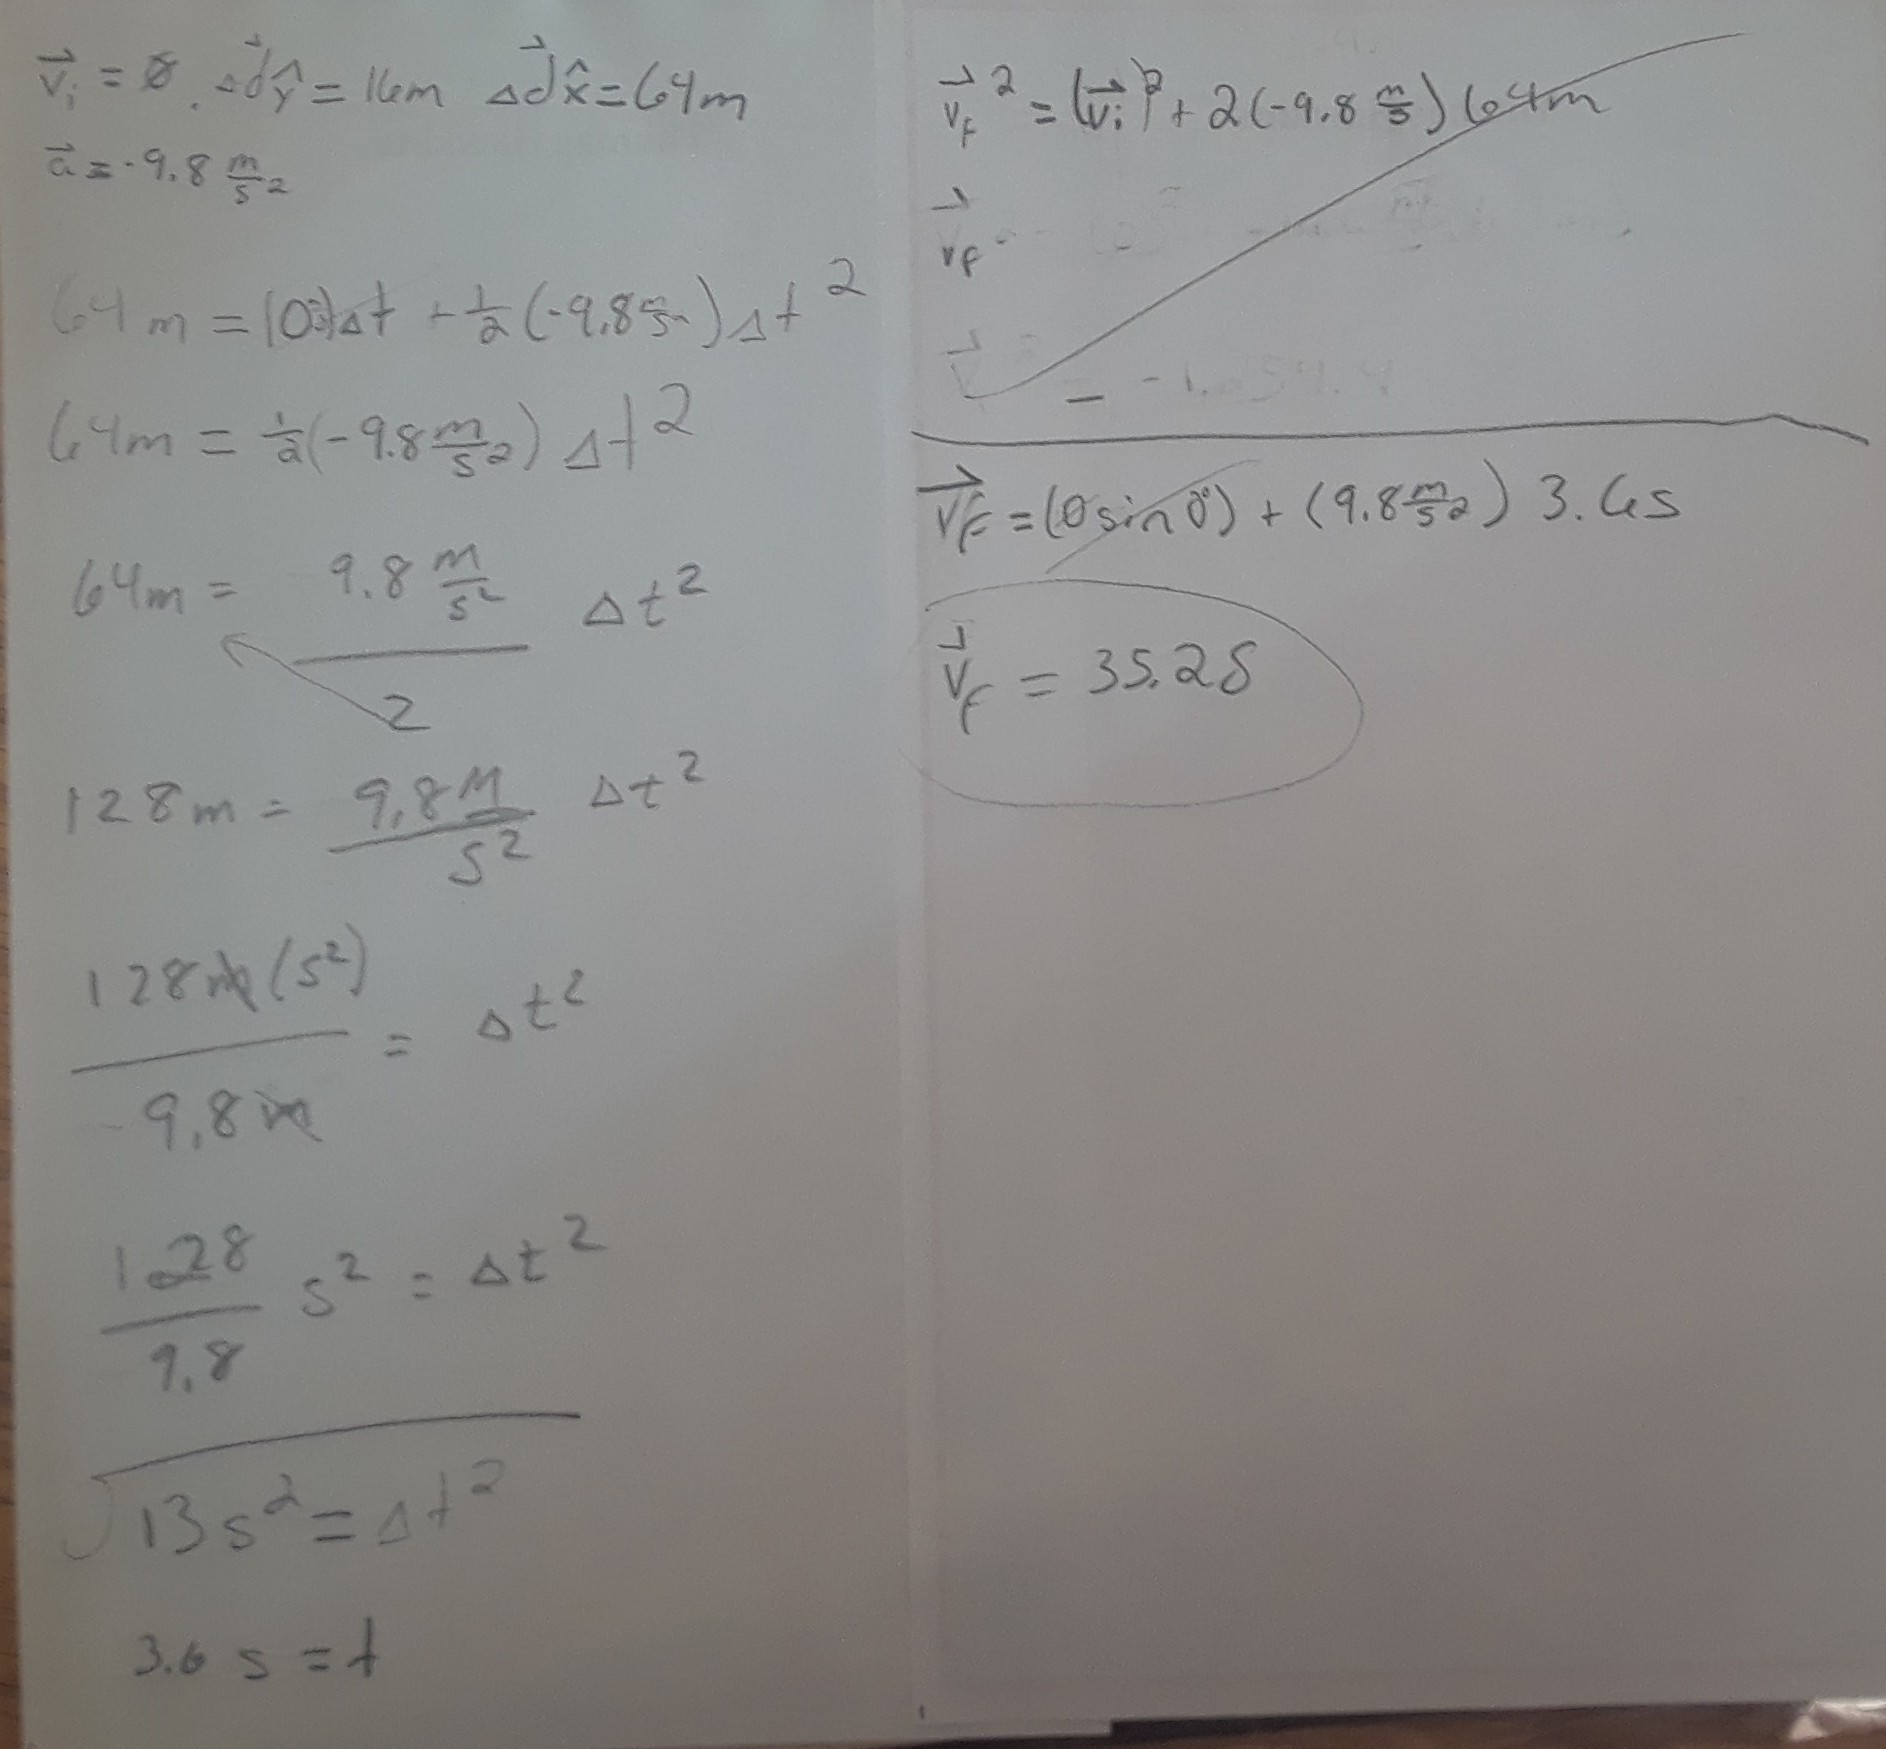 v⃗ᵢ = 0. Δd⃗ŷ = 16m Δd⃗x̂ = 64m
a⃗ = -9.8 m/s²
64m = (0)Δt + 1/2 (-9.8 m/s²) Δt²
64m = 1/2 (-9.8 m/s²) Δt²
64m = 9.8 m/s² / 2 Δt²
128m = 9.8 m/s² Δt²
128m(s²) / 9.8m = Δt²
128/9.8 s² = Δt²
√13s² = Δt²
3.6 s = t
v⃗f² = (v⃗ᵢ)² + 2(-9.8 m/s) 64m
v⃗f
v⃗ = -1
v⃗f = (0 sin 0°) + (9.8 m/s²) 3.6s
v⃗f = 35.28